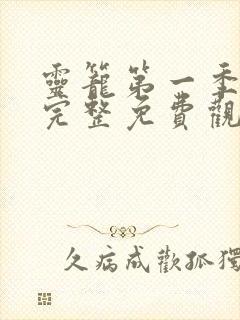 靈籠第一季
完整免費觀
久病成歡孤獨